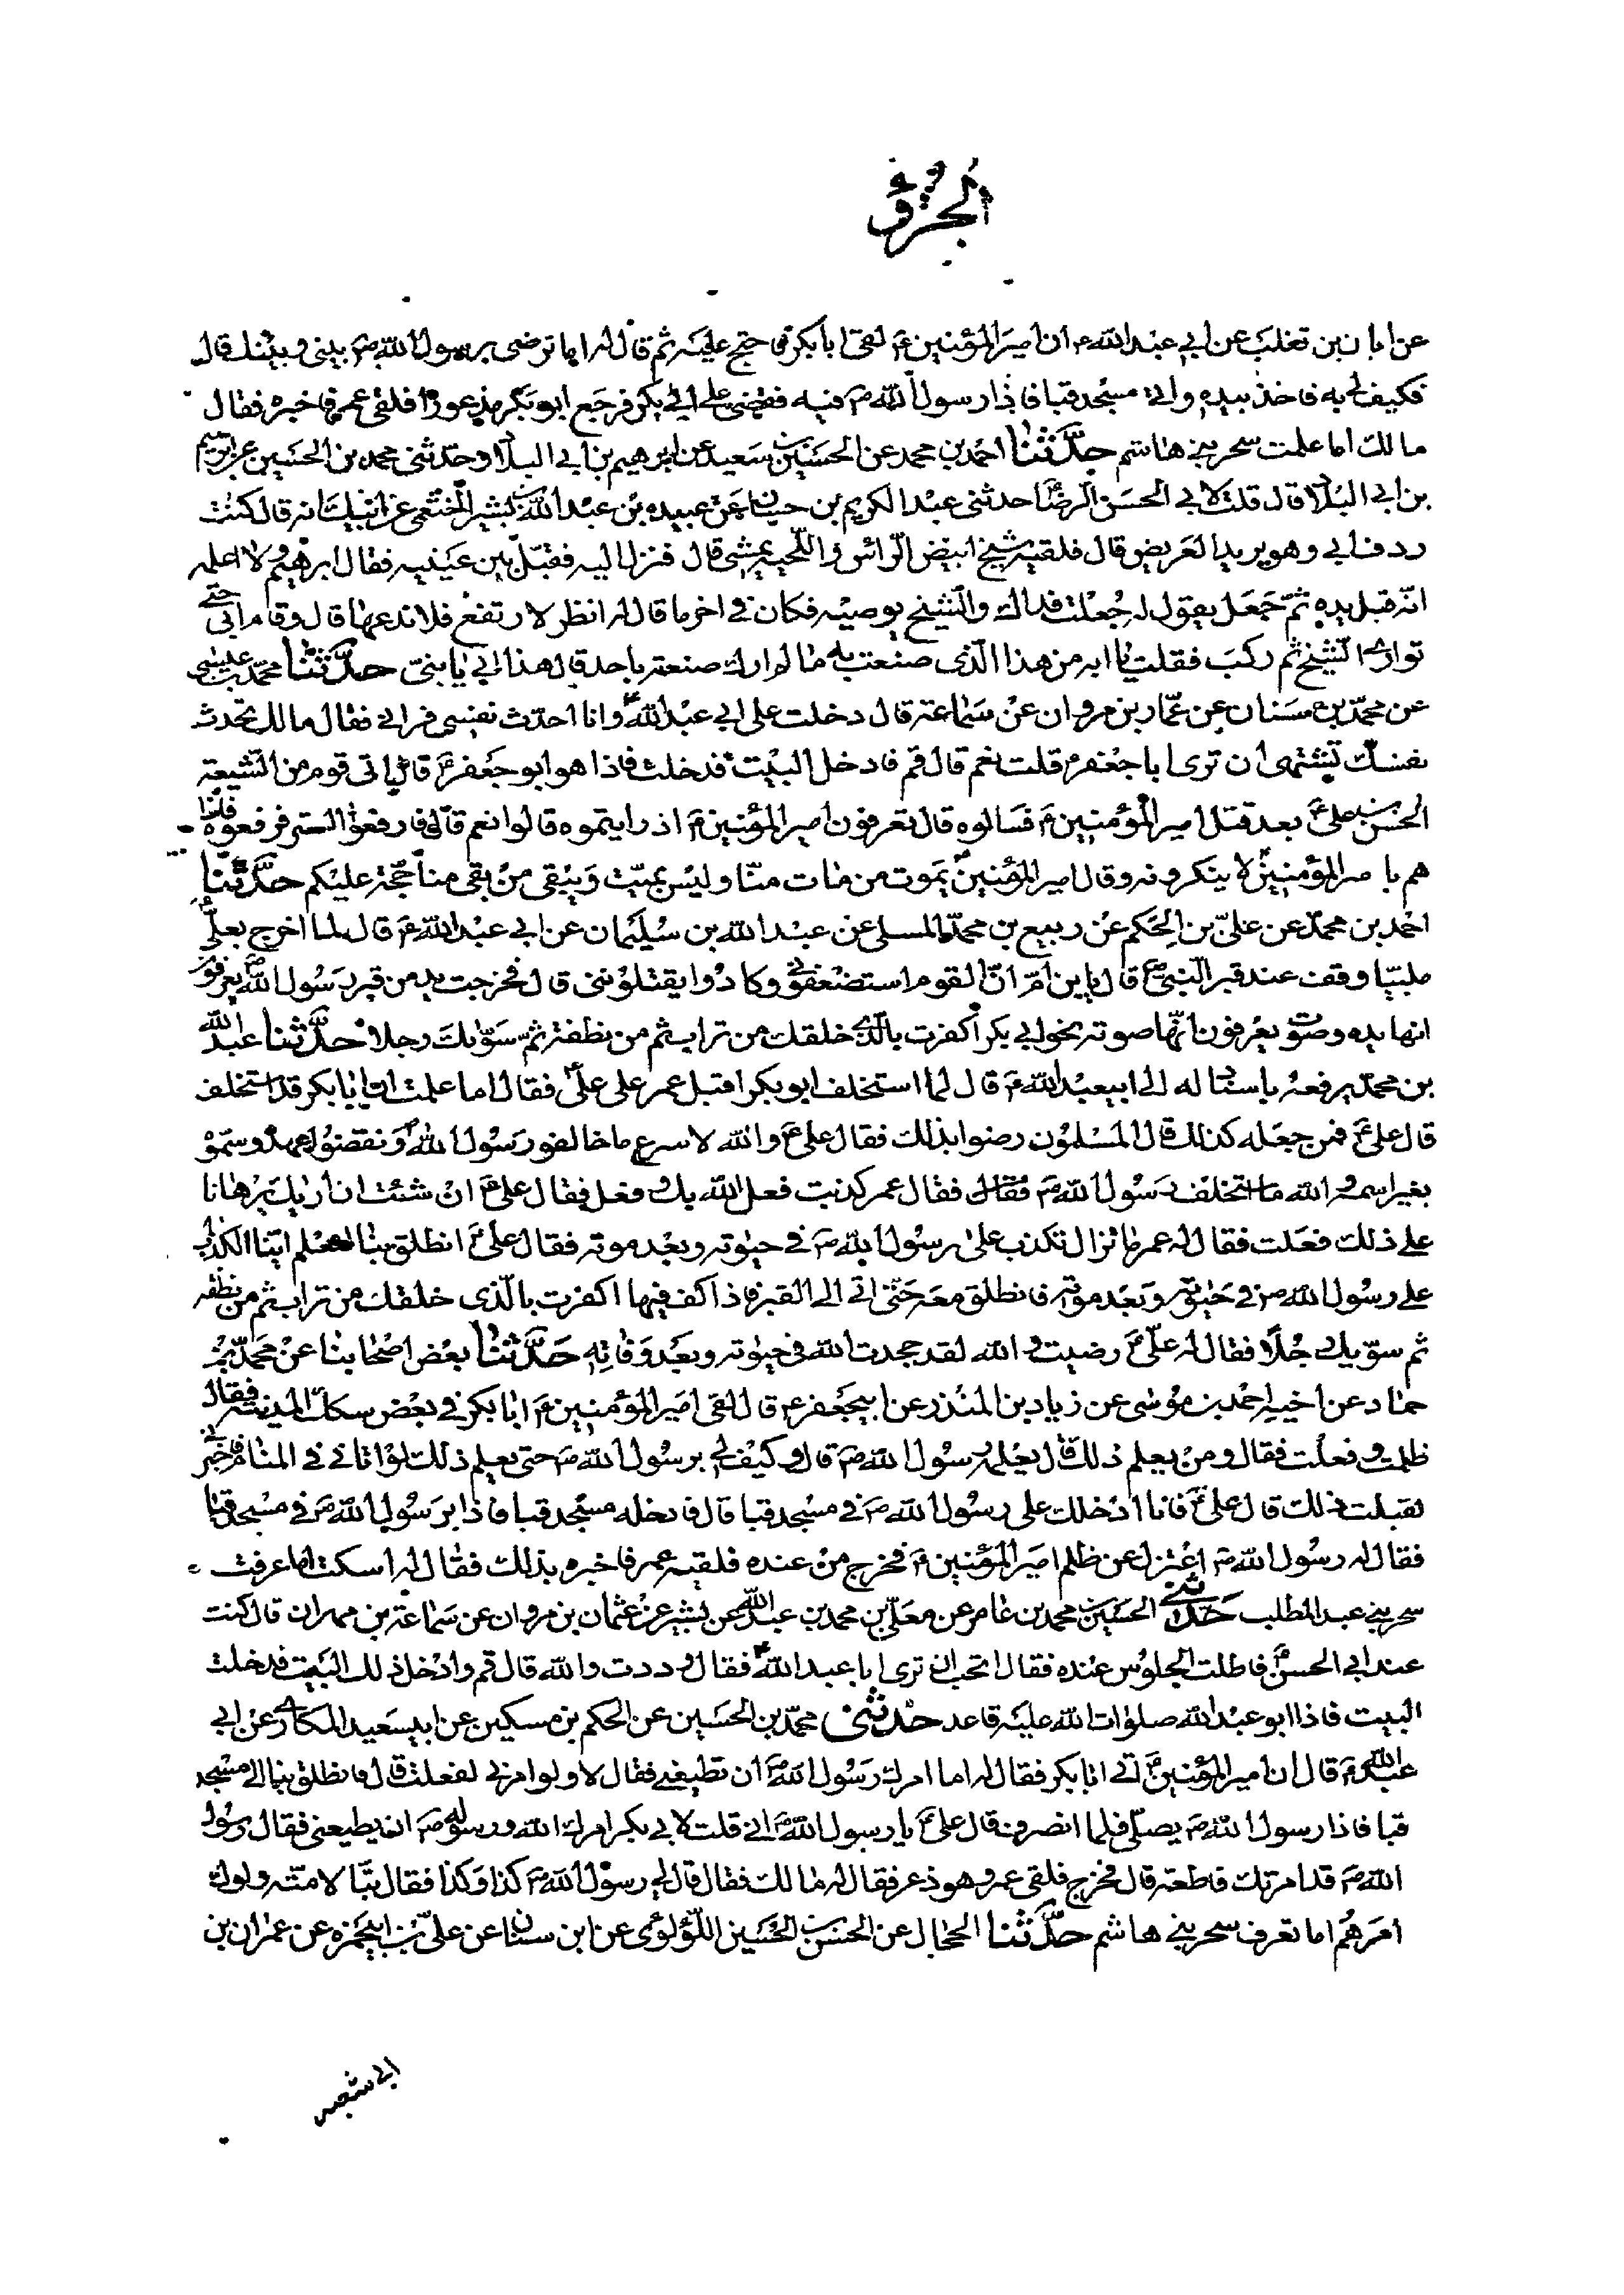 الجزء
عن ابان بن تغلب عن ابى عبد الله ع ان امير المؤمنين ع لقى ابا بكر فاحتج عليه ثم قال له اما ترضى برسول الله ص بينى وبينك قال
فكيف لى به فاخذ بيده واتى مسجد قبا فاذا رسول الله ص فيه فقضى على ابى بكر فرجع ابو بكر مذعورا فلقى عمر فاخبره فقال
مالك اما علمت سحر بنى هاشم حدثنا احمد بن محمد عن الحسين بن سعيد عن ابرهيم بن ابى البلاد وحدثنى محمد بن الحسين عن ابرهيم
بن ابى البلاد قال قلت لابى الحسن الرضا ع حدثنى عبد الكريم بن حسان عن عبيده بن عبد الله بن بشير الخثعمى عن ابيك انه قال كنت
ردف ابى وهو يريد العريض قال فلقيه شيخ ابيض الراس واللحيه يمشى قال فنزل اليه فقبل بين عينيه فقال ابرهيم ولا اعلمه
انه قبل يده ثم جعل يقول له جعلت فداك والشيخ يوصيه فكان فى اخر ما قال له انظر لا رتفع فلا تدعها قال وقام ابى حتى
توارى الشيخ ثم ركب فقلت يا ابه من هذا الذى صنعت به ما لم ارك صنعته باحد قال هذا ابى يا بنى حدثنا محمد بن عيسى
عن محمد بن سنان عن عمار بن مروان عن سماعة قال دخلت على ابى عبد الله ع وانا احدث نفسى فرانى فقال مالك تحدث
نفسك تشتهى ان ترى ابا جعفر ع قلت نعم قال قم فادخل البيت فدخلت فاذا هو ابو جعفر ع قال اتى قوم من الشيعة
الحسن بن على ع بعد قتل امير المؤمنين ع فسالوه قال تعرفون امير المؤمنين ع اذا رايتموه قالوا نعم قال فارفعوا الستر فرفعوه فاذا
هم بامير المؤمنين ع لا ينكرونه وقال امير المؤمنين ع يموت من مات منا وليس بميت ويبقى من بقى منا حجة عليكم حدثنا
احمد بن محمد عن على بن الحكم عن ربيع بن محمد المسلى عن عبد الله بن سليمان عن ابى عبد الله ع قال لما اخرج بعلى ع
ملببا وقف عند قبر النبى ص قال يابن ام ان القوم استضعفونى وكادوا يقتلوننى قال فخرجت يد من قبر رسول الله ص يعرفون
انها يده وصوت يعرفون انها صوته نحو ابى بكر اكفرت بالذى خلقك من تراب ثم من نطفة ثم سويك رجلا حدثنا عبد الله
بن محمد يرفعه باسناد له الى ابى عبد الله ع قال لما استخلف ابو بكر اقبل عمر على على ع فقال اما علمت ان ابا بكر قد استخلف
قال على ع فمن جعله كذلك قال المسلمون رضوا بذلك فقال على ع والله لاسرع ما خالفو رسول الله ص ونقضوا عهده وسموه
بغير اسمه والله ما استخلفه رسول الله ص فقال عمر كذبت فعل الله بك وفعل فقال على ع ان شئت ان اريك برهانا
على ذلك فعلت فقال له عمر ما تزال تكذب على رسول الله ص فى حيوته وبعد موته فقال على ع انطلق بنا لنعلم اينا الكذاب
على رسول الله ص فى حيوته وبعد موته فانطلق معه حتى اتى الى القبر فاذا كف فيها اكفرت بالذى خلقك من تراب ثم من نطفه
ثم سويك رجلا فقال له على ع رضيت والله لقد جحدت الله فى حيوته وبعد وفاته حدثنا بعض اصحابنا عن محمد بن
حماد عن اخيه احمد بن موسى عن زياد بن المنذر عن ابى جعفر ع قال لقى امير المؤمنين ع ابا بكر فى بعض سكك المدينة فقال
ظلمت وفعلت فقال ومن يعلم ذلك قال يعلمه رسول الله ص قال وكيف لى برسول الله ص حتى يعلم ذلك لو اتانى فى المنام فاخبرنى
لقبلت ذلك قال على ع فانا ادخلك على رسول الله ص فى مسجد قبا قال فادخله مسجد قبا فاذا برسول الله ص فى مسجد قبا
فقال له رسول الله ص اعتزل عن ظلم امير المؤمنين ع فخرج من عنده فلقيه عمر فاخبره بذلك فقال له اسكت اما عرفت
سحر بنى عبد المطلب حدثنى الحسين بن محمد بن عامر عن معلى بن محمد بن عبد الله عن بشير عن عثمان بن مروان عن سماعة بن مهران قال كنت
عند ابى الحسن ع فاطلت الجلوس عنده فقال اتحب ان ترى ابا عبد الله ع فقال وددت والله قال قم وادخل ذلك البيت فدخلت
البيت فاذا ابو عبد الله صلوات الله عليه قاعد حدثنى محمد بن الحسين عن الحكم بن مسكين عن ابى سعيد المكارى عن ابى
عبد الله ع قال ان امير المؤمنين ع اتى ابا بكر فقال له اما امرك رسول الله ص ان تطيعنى فقال لا ولو امرنى لفعلت قال فانطلق بنا الى مسجد
قبا فاذا رسول الله ص يصلى فلما انصرف قال على ع يا رسول الله ص انى قلت لابى بكر امرك الله ورسوله ص ان يطيعنى فقال رسول
الله ص قد امرتك فاطعه قال فخرج فلقى عمر وهو ذعر فقال له مالك فقال قال لى رسول الله ص كذا وكذا فقال تبا لامته ولوك
امرهم اما تعرف سحر بنى هاشم حدثنا الحجال عن الحسن بن الحسين اللؤلؤى عن ابن سنان عن على بن ابى حمزه عن عمران بن
ابى شعبه